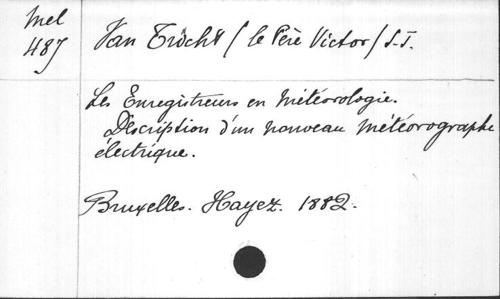 Mel
487
Van Tricht / le Père Victor / S.J.
Les Enregistreurs en Météorologie.
Description d'un nouveau Météorographe
électrique.
Bruxelles. Hayez. 1882.